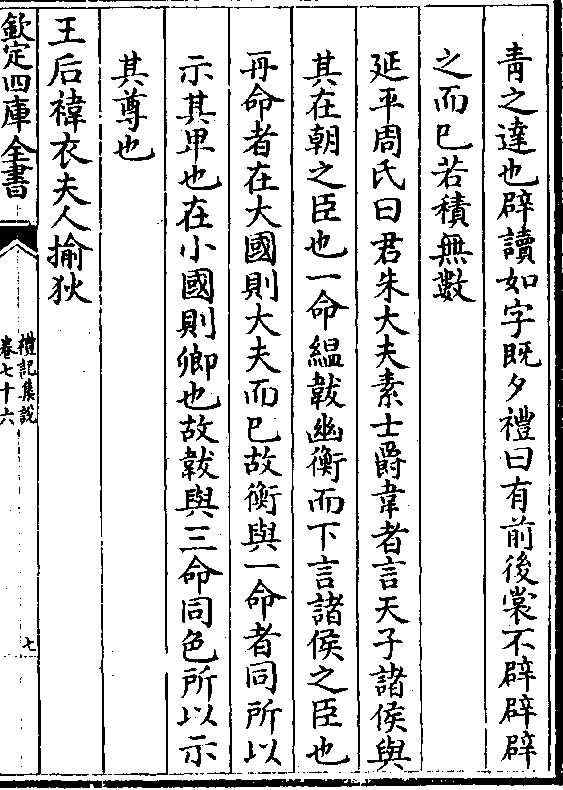 青之達也辟讀如字既夕禮曰有前後裳不辟辟辟
之而已若積無數
延平周氏曰君朱大夫素士爵韋者言天子諸侯與
其在朝之臣也一命緼韍幽衡而下言諸侯之臣也
再命者在大國則大夫而已故衡與一命者同所以
示其卑也在小國則卿也故韍與三命同色所以示
其尊也
王后褘衣夫人揄狄
欽定四庫全書
禮記集說
卷七十六
七